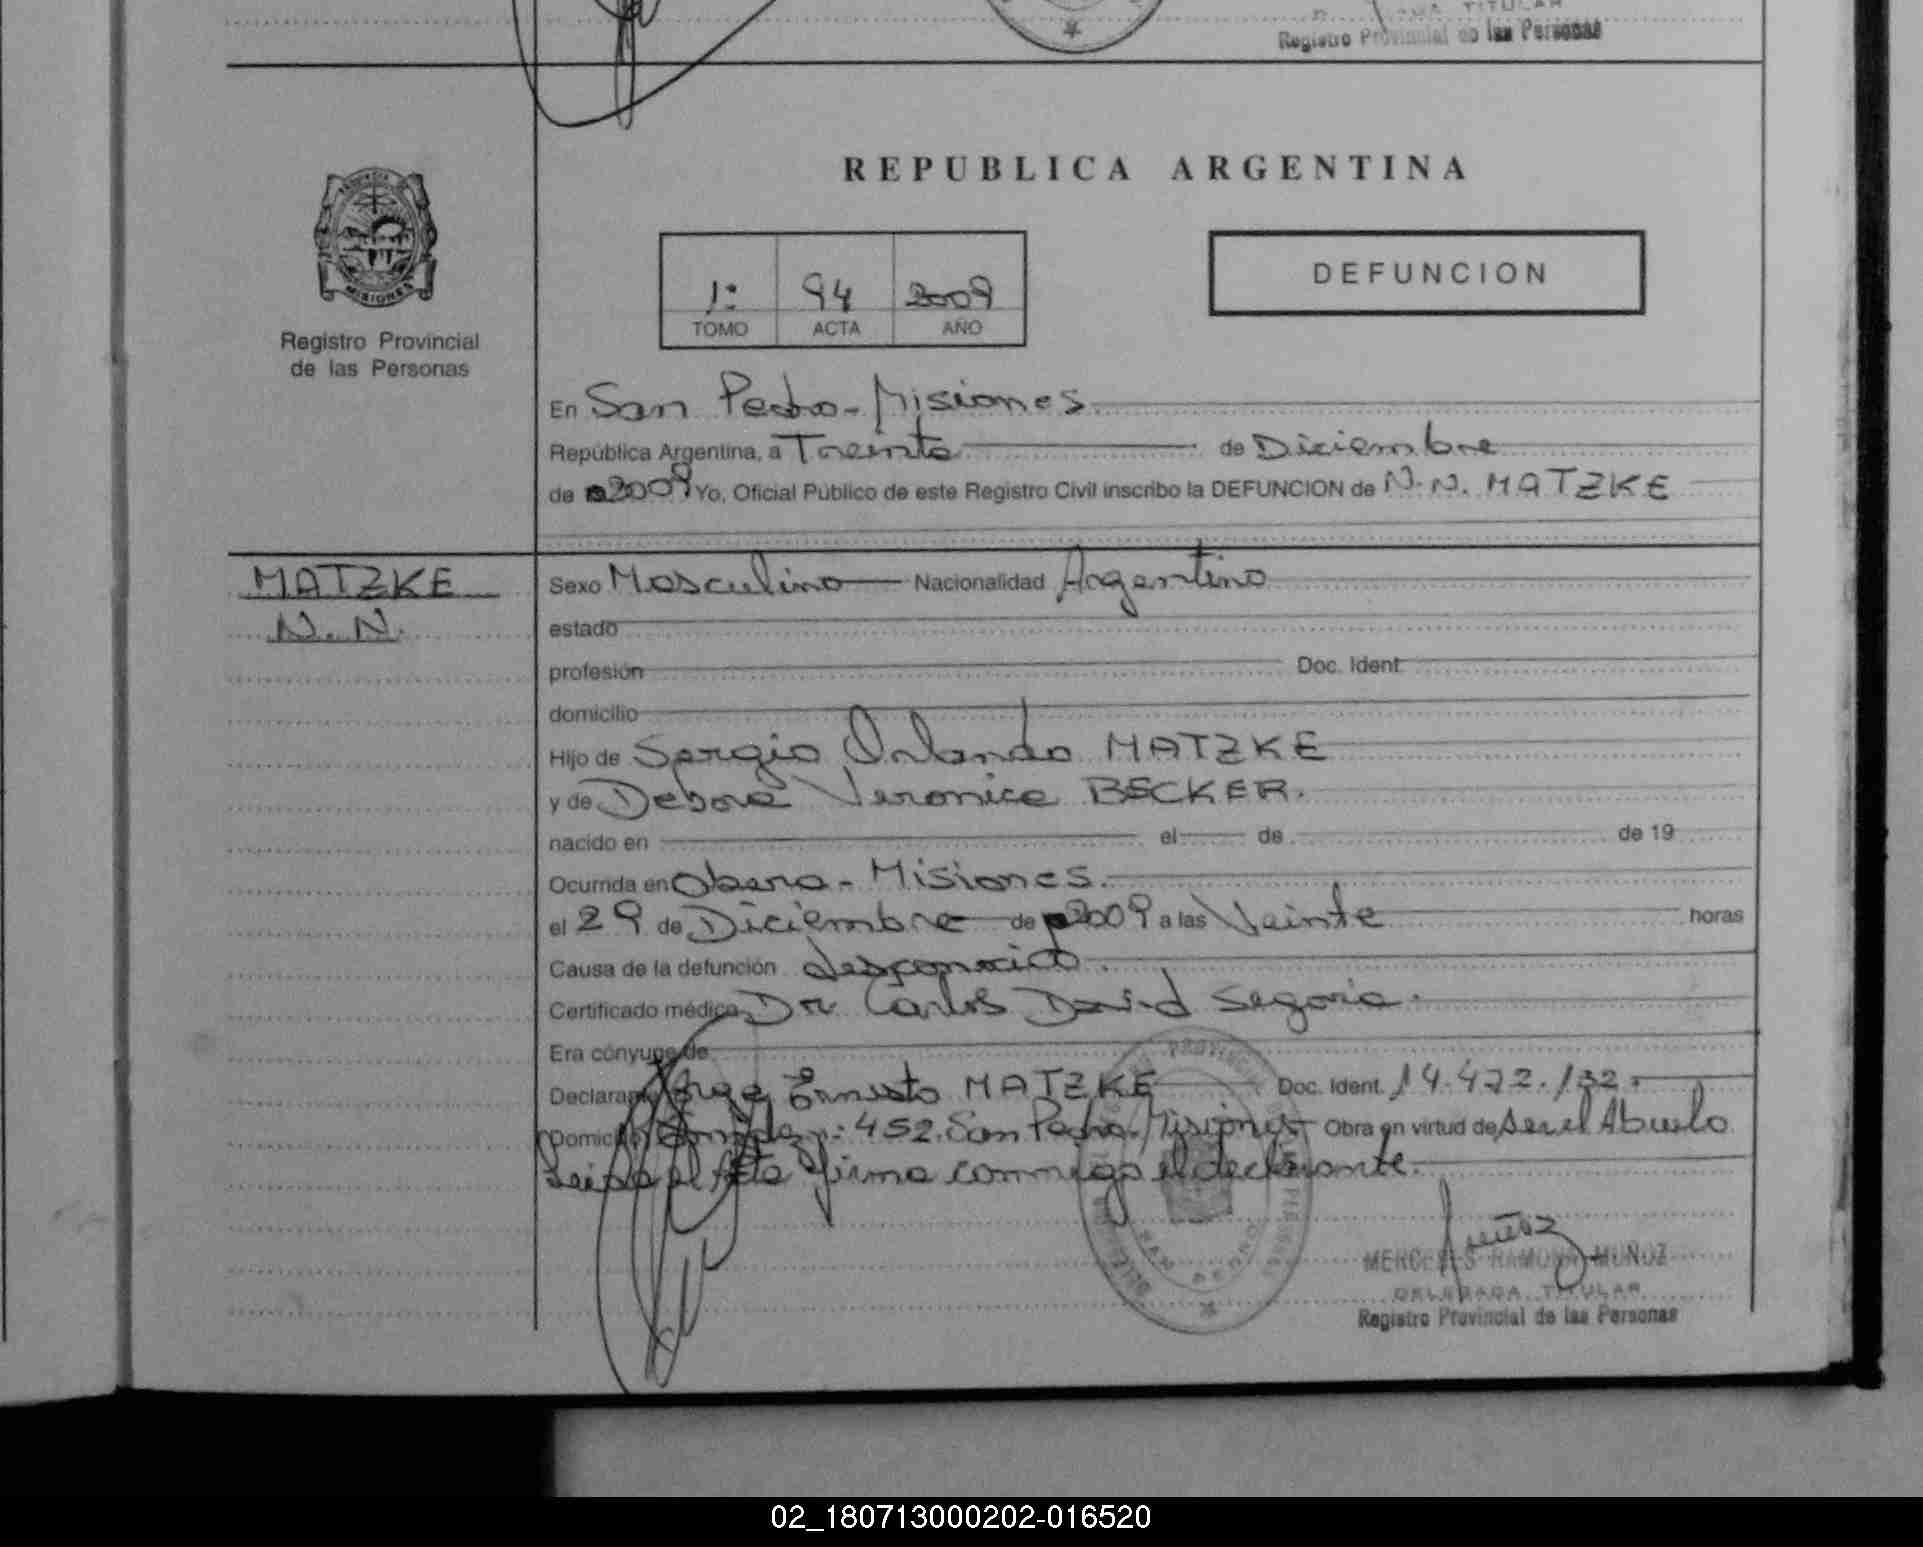 TITULAR
Registro Provincial de las Personas
REPUBLICA ARGENTINA
MISIONES
Registro Provincial
de las Personas
1º 94 2009
TOMO ACTA AÑO
DEFUNCION
En San Pedro - Misiones
República Argentina, a Treinta de Diciembre
de 2009 Yo, Oficial Público de este Registro Civil inscribo la DEFUNCION de N. N. MATZKE
MATZKE
N. N.
Sexo Masculino Nacionalidad Argentino
estado
profesión Doc. Ident.
domicilio
Hijo de Sergio Orlando MATZKE
y de Debora Veronica BECKER.
nacido en el de de 19
Ocurrida en Obera - Misiones.
el 29 de Diciembre de 2009 a las Veinte horas
Causa de la defunción desconocido.
Certificado médico Dr. Carlos David Segovia.
Era cónyuge de
Declarante Jorge Ernesto MATZKE Doc. Ident. 14.472.132.
Domicilio nº: 452. San Pedro - Misiones Obra en virtud de ser el Abuelo
Leida el Acta firma conmigo el declarante.
Muñoz
MERCEDES RAMONA MUÑOZ
DELEGADA TITULAR
Registro Provincial de las Personas
02_180713000202-016520